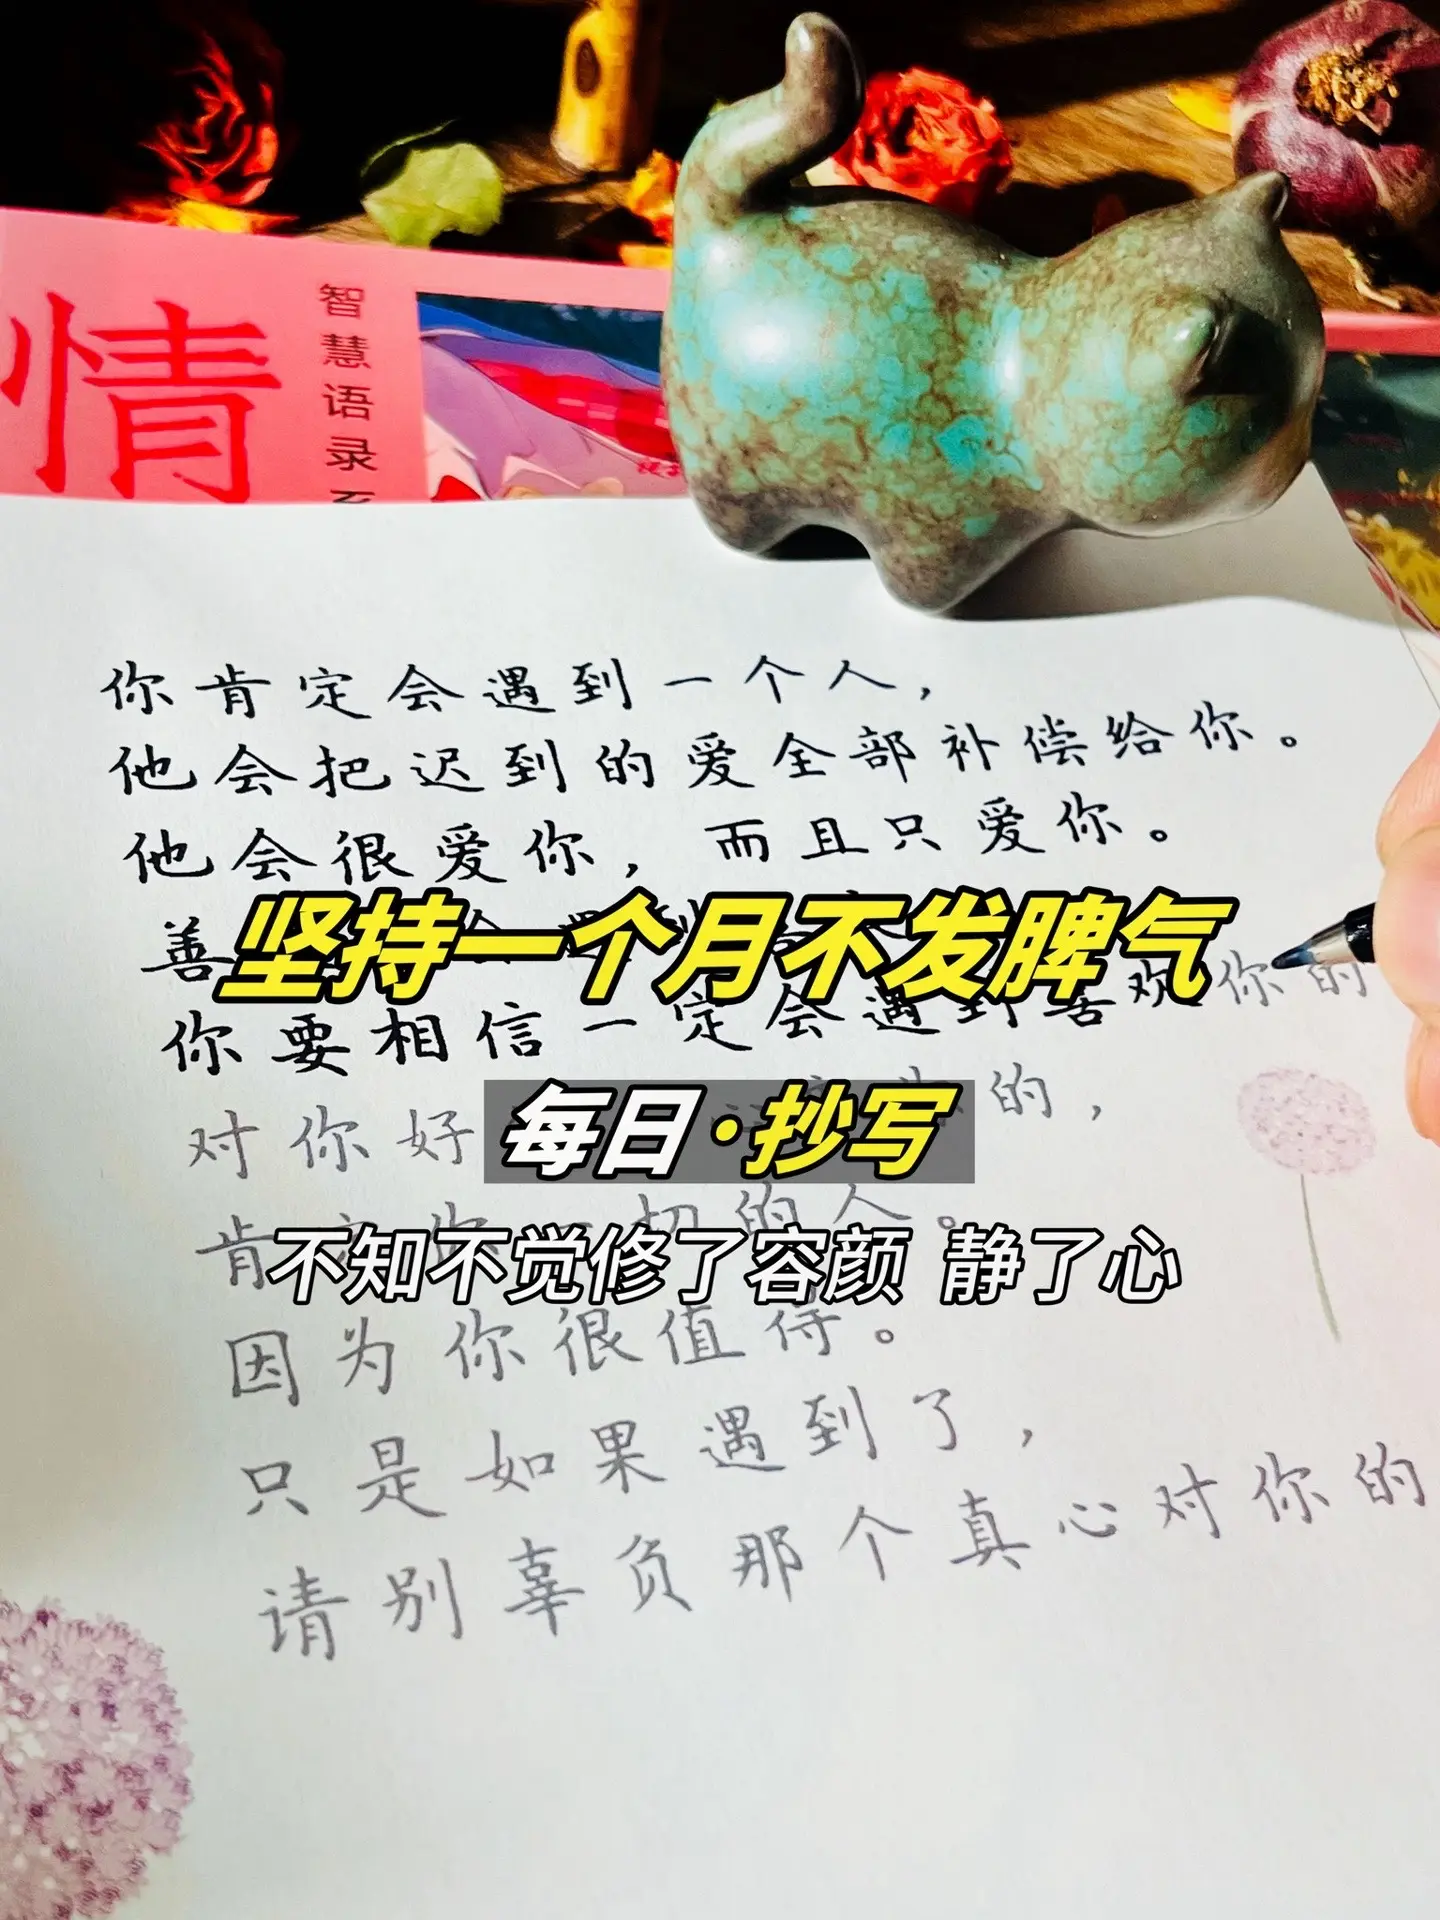 情
智慧语录
你肯定会遇到一个人,
他会把迟到的爱全部补偿给你。
他会很爱你,而且只爱你。
善
坚持一个月不发脾气
你要相信一定会遇到喜欢你的
每日·抄写
对你好 的,
肯定你一切的人。
不知不觉修了容颜 静了心
因为你很值得。
只是如果遇到了,
请别辜负那个真心对你的